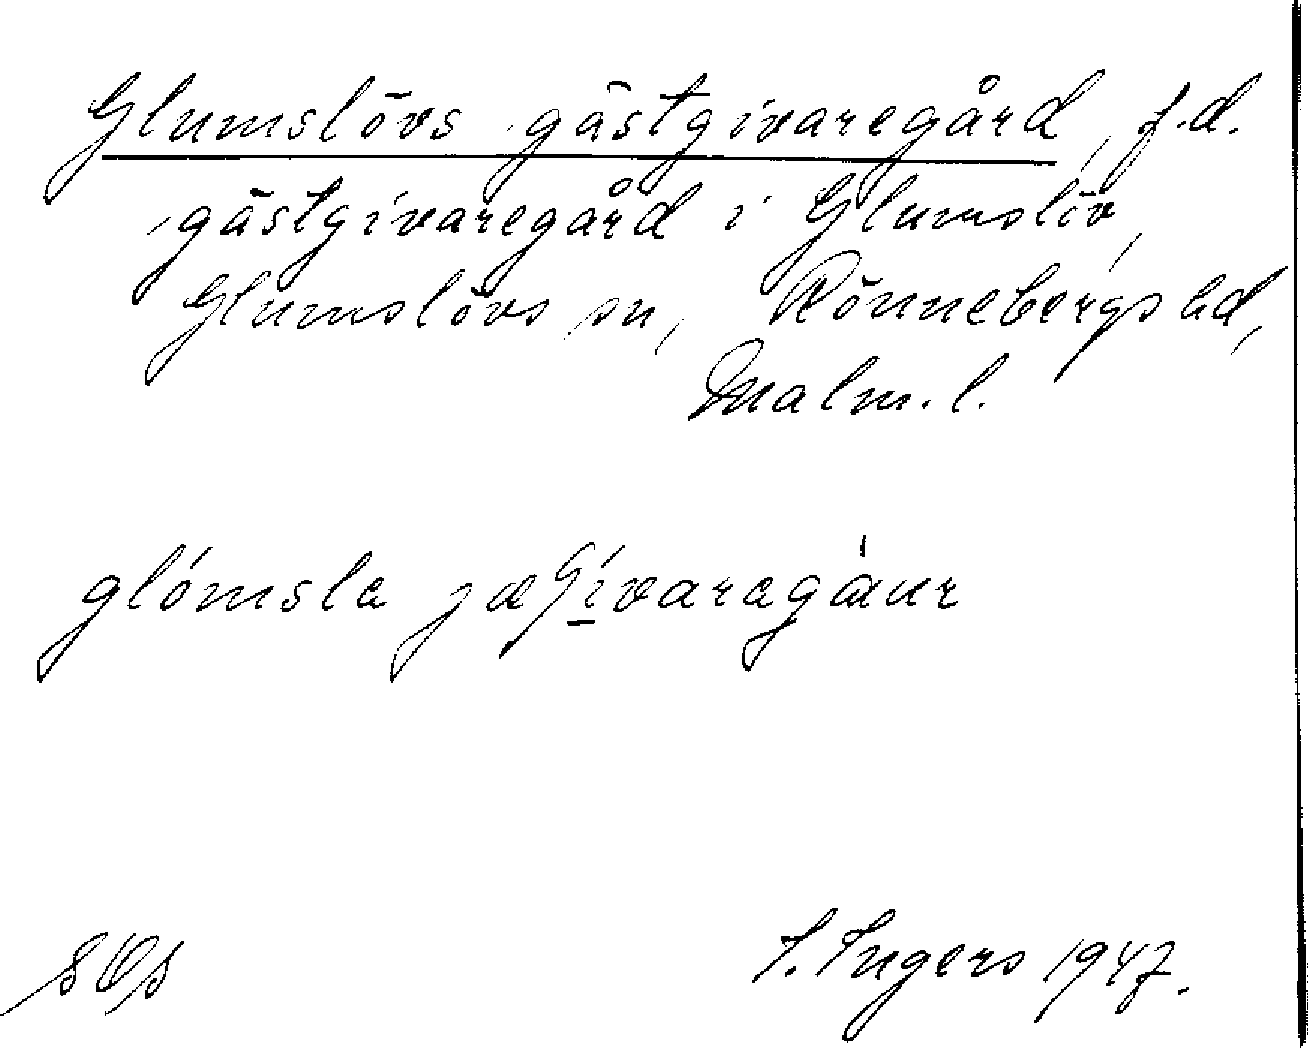 Glumslövs gästgivaregård, f.d.
gästgivaregård i Glumslöv,
Glumslövs sn, Rönnebergs hd,
Malm. l.
glómsla
I. Ingers 1947.